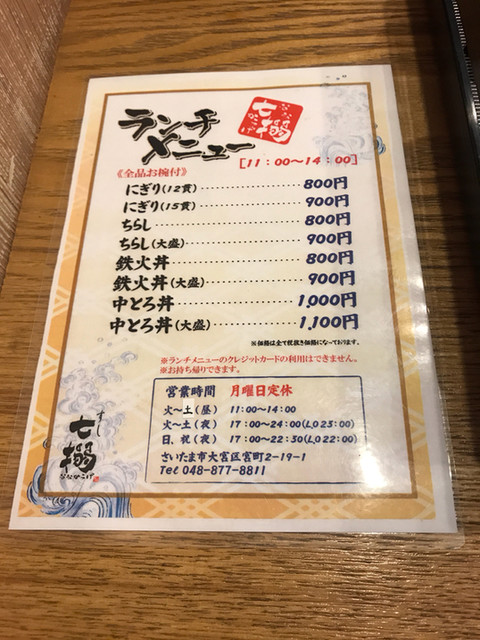 ランチ
メニュー
七撈
ななかこげ
[11:00〜14:00]
《全品お椀付》
にぎり(12貫)……………………800円
にぎり(15貫)……………………900円
ちらし……………………………800円
ちらし(大盛)……………………900円
鉄火丼……………………………800円
鉄火丼(大盛)……………………900円
中とろ丼…………………………1,000円
中とろ丼(大盛)…………………1,100円
※価格は全て税抜き価格になっております。
※ランチメニューのクレジットカードの利用はできません。
※お持ち帰りできます。
営業時間 月曜日定休
火〜土(昼) 11:00〜14:00
火〜土(夜) 17:00〜24:00(L.O23:00)
日、祝(夜) 17:00〜22:30(L.O22:00)
さいたま市大宮区宮町2-19-1
Tel 048-877-8811
すし
ななかこげ